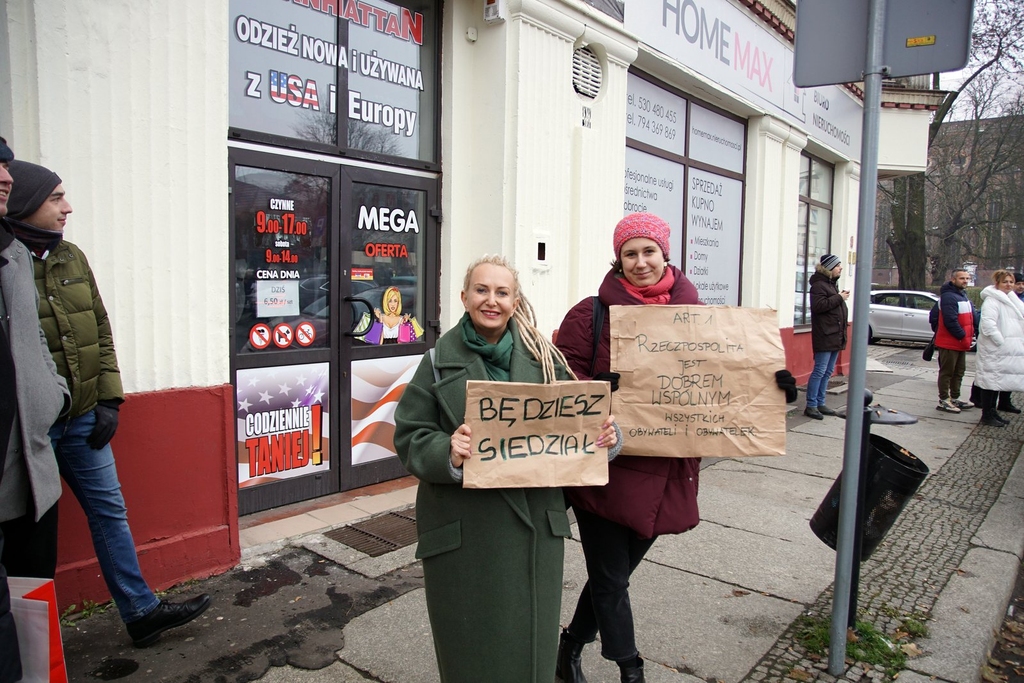 MANHATTAN
ODZIEŻ NOWA i UŻYWANA
z USA i Europy
CZYNNE
9.00-17.00
sobota
9.00-14.00
CENA DNIA
DZIŚ
6,50
MEGA
OFERTA
CODZIENNIE
TANIEJ!
HOMEMAX
BIURO
NIERUCHOMOŚCI
tel. 530 480 455
tel. 794 369 869
homemax.nieruchomosci.pl
SPRZEDAŻ
KUPNO
WYNAJEM
Mieszkania
Domy
Działki
BĘDZIESZ
SIEDZIAŁ
ART 1
RZECZPOSPOLITA
JEST
DOBREM
WSPÓLNYM
WSZYSTKICH
OBYWATELI I OBYWATELEK